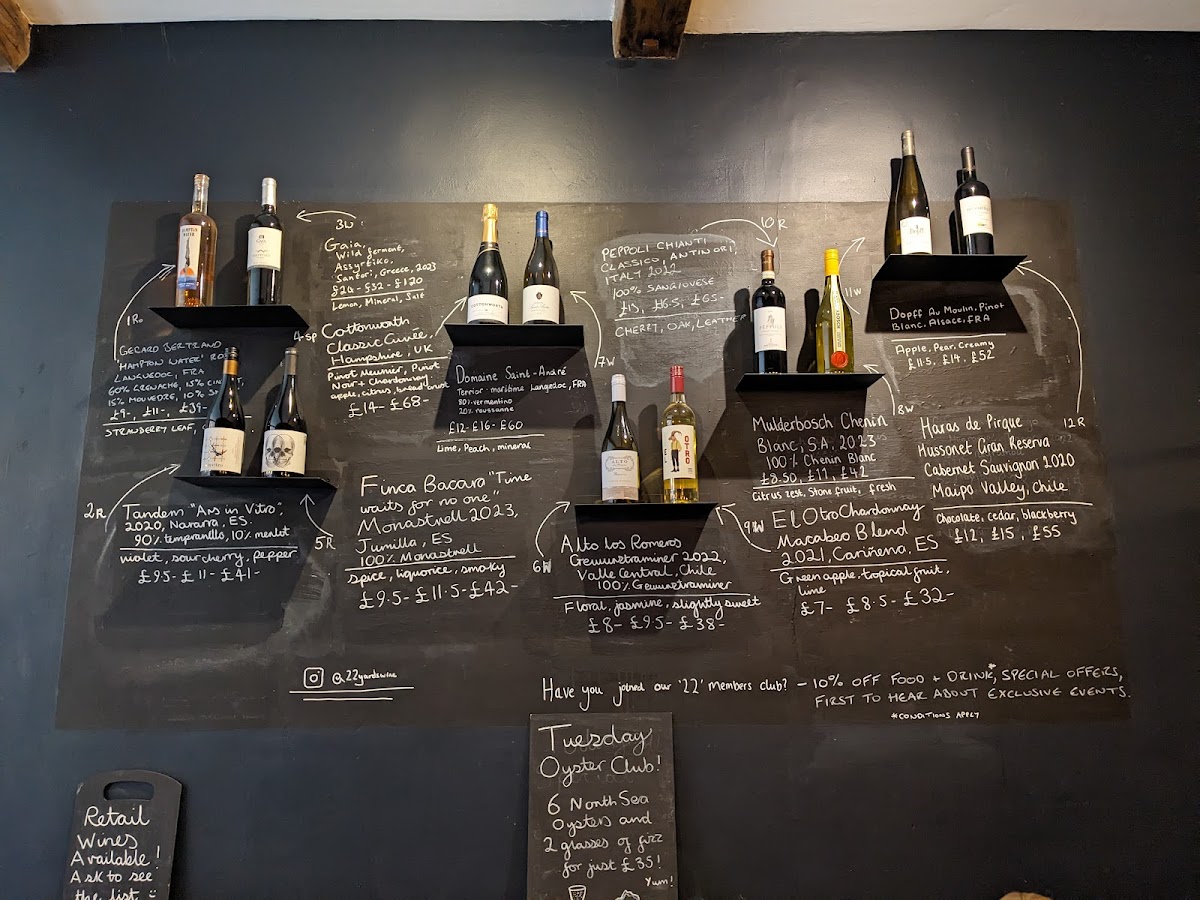 1Ro
GECARD BERTRAND
HAMPTON WATER
LANGUEDOC, FRA
60% GRENACHE, 15%
15% MOUVEDRE, 10%
£9-, £11-, £39-
STRAWBERRY LEAF,
3W
Gaia,
Wild ferment,
Assyrtiko,
Santori, Greece, 2023
£24-£32-£120
Lemon, Mineral, Salt
GAIA
4-SP
Cottonworth
Classic Cuvée,
Hampshire, UK
Pinot Meunier, Pinot
Noir + Chardonnay
apple, citrus, bread
£14- £68-
COTTONWORTH
7W
Domaine Saint-André
Terrior-maritime Langedoc, FRA
80% vermentino
20% roussanne
£12-£16-£60
Lime, Peach, mineral
10R
PEPPOLI CHIANTI
CLASSICO, ANTINORI,
ITALY 2022
100% SANGIOVESE
£15, £16.5, £65-
CHERRY, OAK, LEATHER
PEPPOLI
11W
Dopff Au Moulin, Pinot
Blanc, Alsace, FRA
Apple, Pear, Creamy
£11.5, £14, £52
2R
Tandem "Ars in Vitro",
2020, Nararra, ES.
90% tempranillo, 10% merlot
violet, sour cherry, pepper
£9.5- £11- £41-
5R
Finca Bacara "Time
waits for no one"
Monastrell 2023,
Jumilla, ES
100% Monastrell
spice, liquorice, smoky
£9.5-£11.5-£42-
ALTO
OTRO
6W
Alto Los Romeros
Gewurztraminer 2022,
Valle Central, Chile
100% Gewurztraminer
Floral, jasmine, slightly sweet
£8- £9.5- £38-
8W
Mulderbosch Chenin
Blanc, S.A. 2023
100% Chenin Blanc
£8.50, £11, £42
Citrus zest, Stone fruit, fresh
9W
El Otro Chardonnay
Macabeo Blend
2021, Cariñena, ES
Green apple, tropical fruit,
lime
£7- £8.5- £32-
12R
Haras de Pirque
Hussonet Gran Reserva
Cabernet Sauvignon 2020
Maipo Valley, Chile
Chocolate, cedar, blackberry
£12, £15, £55
@22yardswine
Have you joined our '22' members club? - 10% OFF FOOD + DRINK*, SPECIAL OFFERS,
FIRST TO HEAR ABOUT EXCLUSIVE EVENTS.
*CONDITIONS APPLY
Tuesday
Oyster Club!
6 North Sea
Oysters and
2 glasses of fizz
for just £35!
Yum!
Retail
Wines
Available!
Ask to see
the list